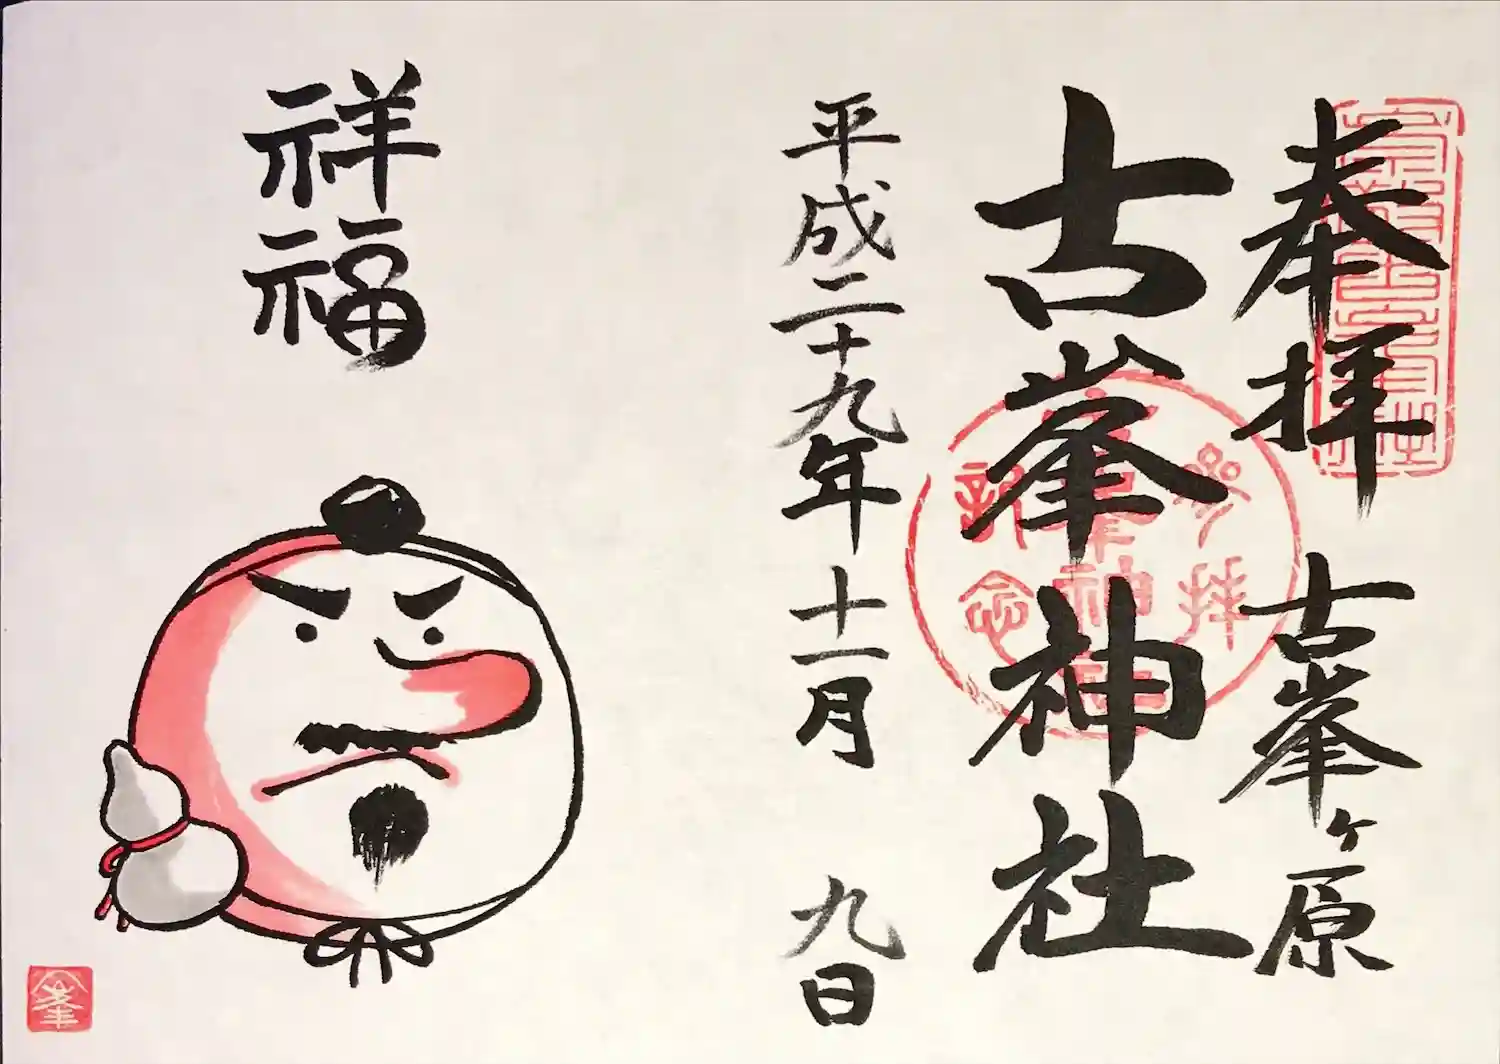 奉拝 古峯ヶ原
古峯神社
参拝
新念
平成二十九年十一月 九日
祥福
峯